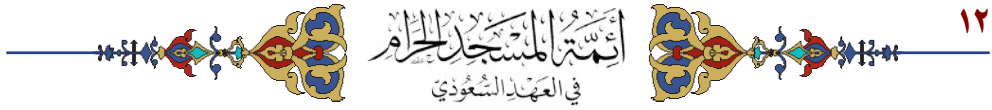 ١٢
أَئِمَّةُ المَسْجِدِ الحَرَامِ
فِي العَهْدِ السُّعُودِيِّ